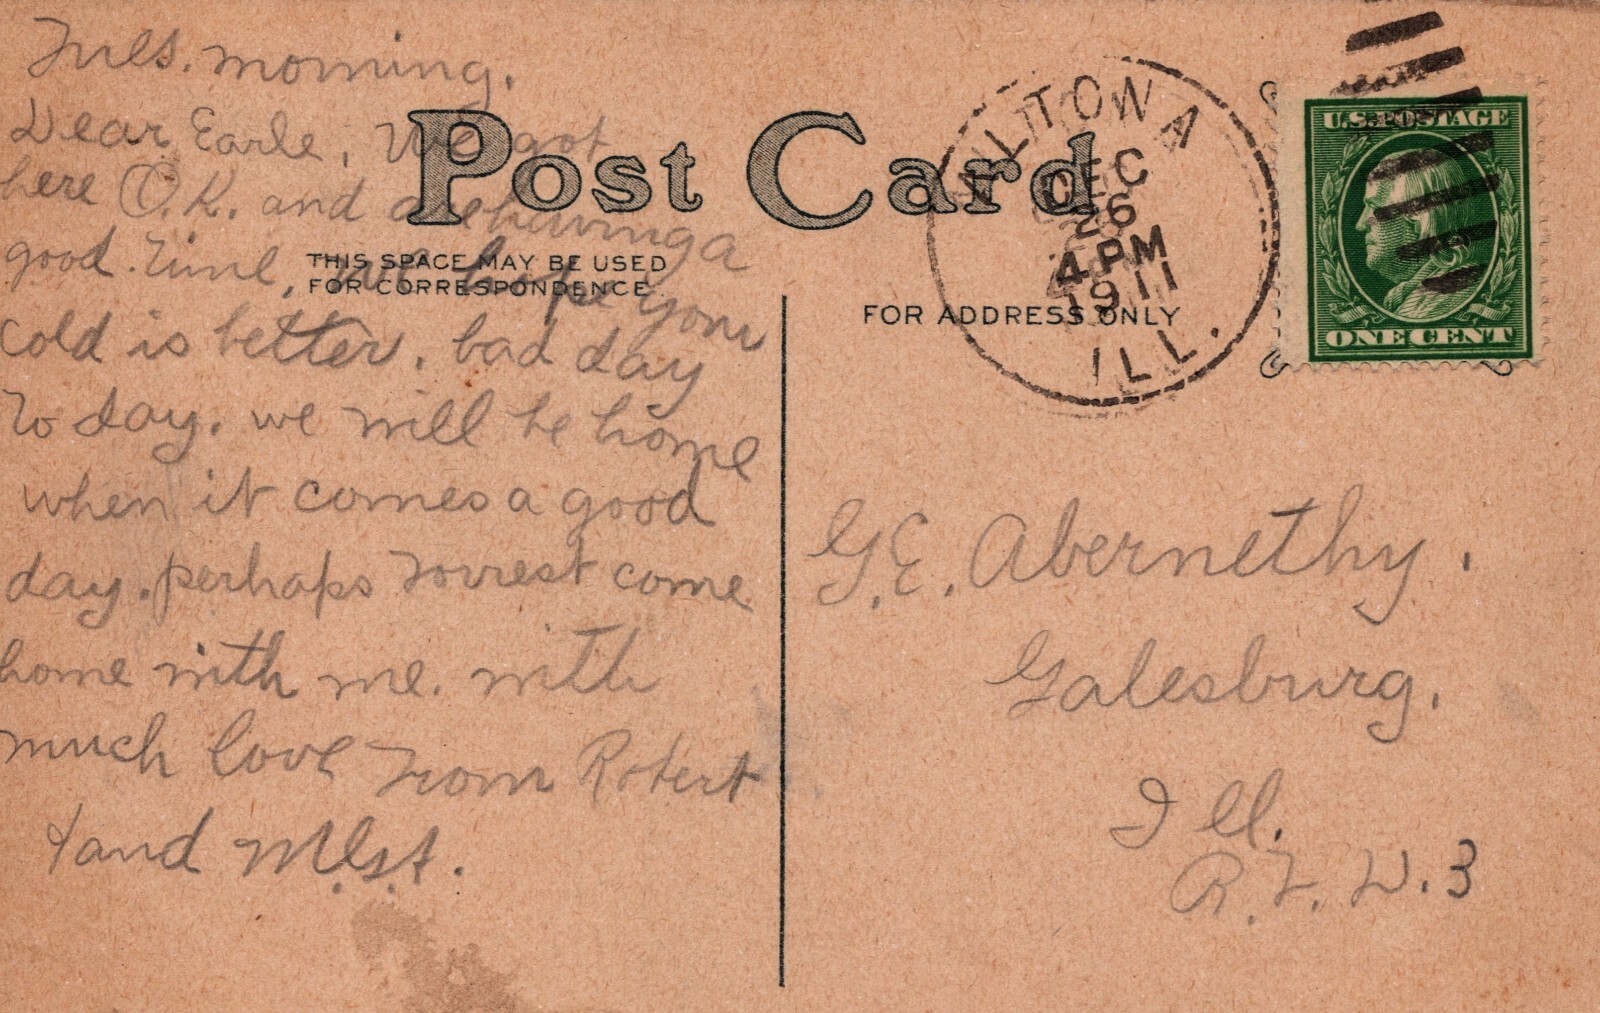 Tues. morning.
Dear Earle, We got
here O.K. and are having a
good time, we hope your
cold is better. bad day
to day. we will be home
when it comes a good
day. perhaps Forrest come
home with me. with
much love from Robert
and
Post Card
THIS SPACE MAY BE USED
FOR CORRESPONDENCE.
FOR ADDRESS ONLY
DEC
26
4 PM
1911
ILL.
U.S. POSTAGE
ONE CENT
G.E. Abernethy.
Galesburg.
Ill.
R.F.D. 3